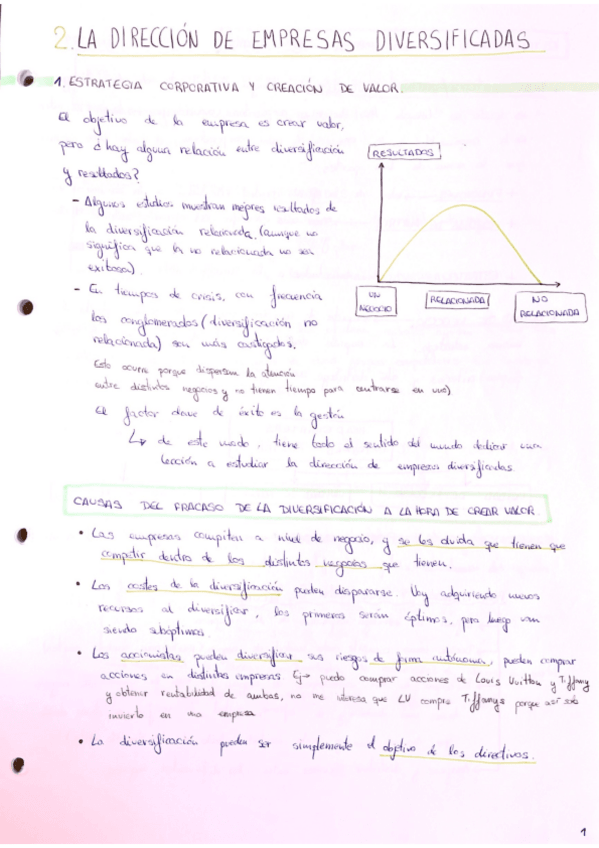 2. LA DIRECCIÓN DE EMPRESAS DIVERSIFICADAS
1. ESTRATEGIA CORPORATIVA Y CREACIÓN DE VALOR.
El objetivo de la empresa es crear valor,
pero ¿hay alguna relación entre diversificación
y resultados?
RESULTADOS
UN
NEGOCIO
RELACIONADA
NO
RELACIONADA
- Algunos estudios muestran mejores resultados de
la diversificación relacionada. (aunque no
significa que la no relacionada no sea
exitosa).
- En tiempos de crisis, con frecuencia
los conglomerados (diversificación no
relacionada) son más castigados.
Esto ocurre porque dispersan la atención
entre distintos negocios y no tienen tiempo para centrarse en uno)
El factor clave de éxito es la gestión
↳ de este modo, tiene todo el sentido del mundo dedicar una
lección a estudiar la dirección de empresas diversificadas.
CAUSAS DEL FRACASO DE LA DIVERSIFICACIÓN A LA HORA DE CREAR VALOR.
• Las empresas compiten a nivel de negocio, y se les olvida que tienen que
competir dentro de los distintos negocios que tienen.
• Los costes de la diversificación pueden dispararse. Voy adquiriendo nuevos
recursos al diversificar, los primeros serán óptimos, pero luego van
siendo subóptimos.
• Los accionistas pueden diversificar sus riesgos de forma autónoma, pueden comprar
acciones en distintas empresas ↳ puedo comprar acciones de Louis Vuitton y Tiffany
y obtener rentabilidad de ambas, no me interesa que LV compre Tiffanys porque así solo
invierto en una empresa
• La diversificación pueden ser simplemente el objetivo de los directivos.
1